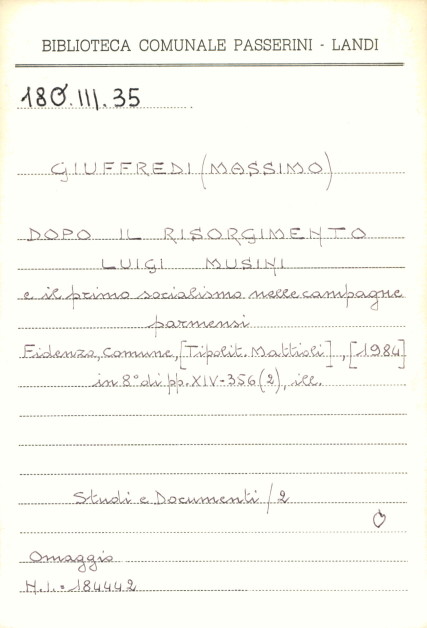 BIBLIOTECA COMUNALE PASSERINI - LANDI
180.III.35
GIUFFREDI (MASSIMO)
DOPO IL RISORGIMENTO
LUIGI MUSINI
e il primo socialismo nelle campagne
parmensi
Fidenza, Comune, [Tipolit. Mattioli], [1984]
in 8° di pp. XIV-356 (2), ill.
Studi e Documenti / 2
Omaggio
N.I. = 184442